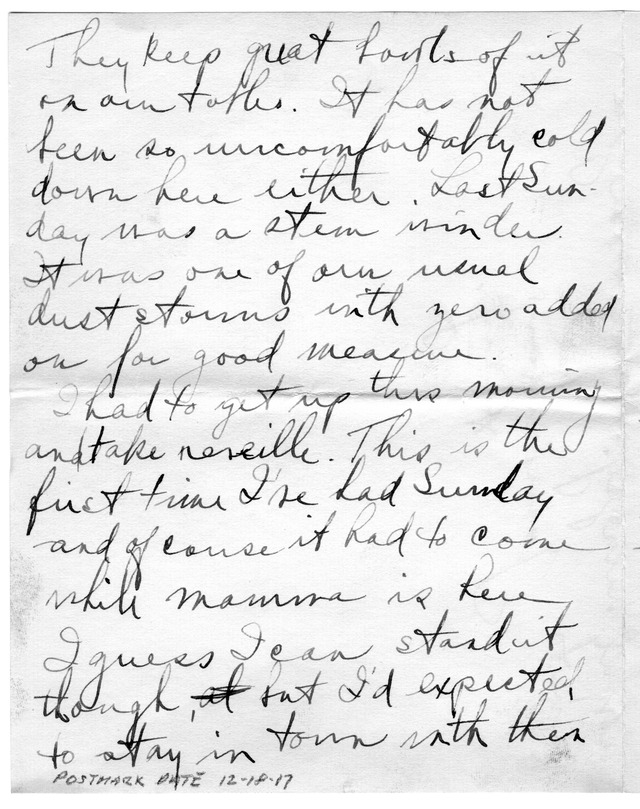 They keep great bowls of it
on our tables. It has not
been so uncomfortably cold
down here either. Last Sun-
day was a stem winder.
It was one of our usual
dust storms with zero added
on for good measure.
I had to get up this morning
and take reveille. This is the
first time I've had Sunday
and of course it had to come
while mamma is here
I guess I can stand it
though, at but I'd expected
to stay in town with them
POSTMARK DATE 12-18-17